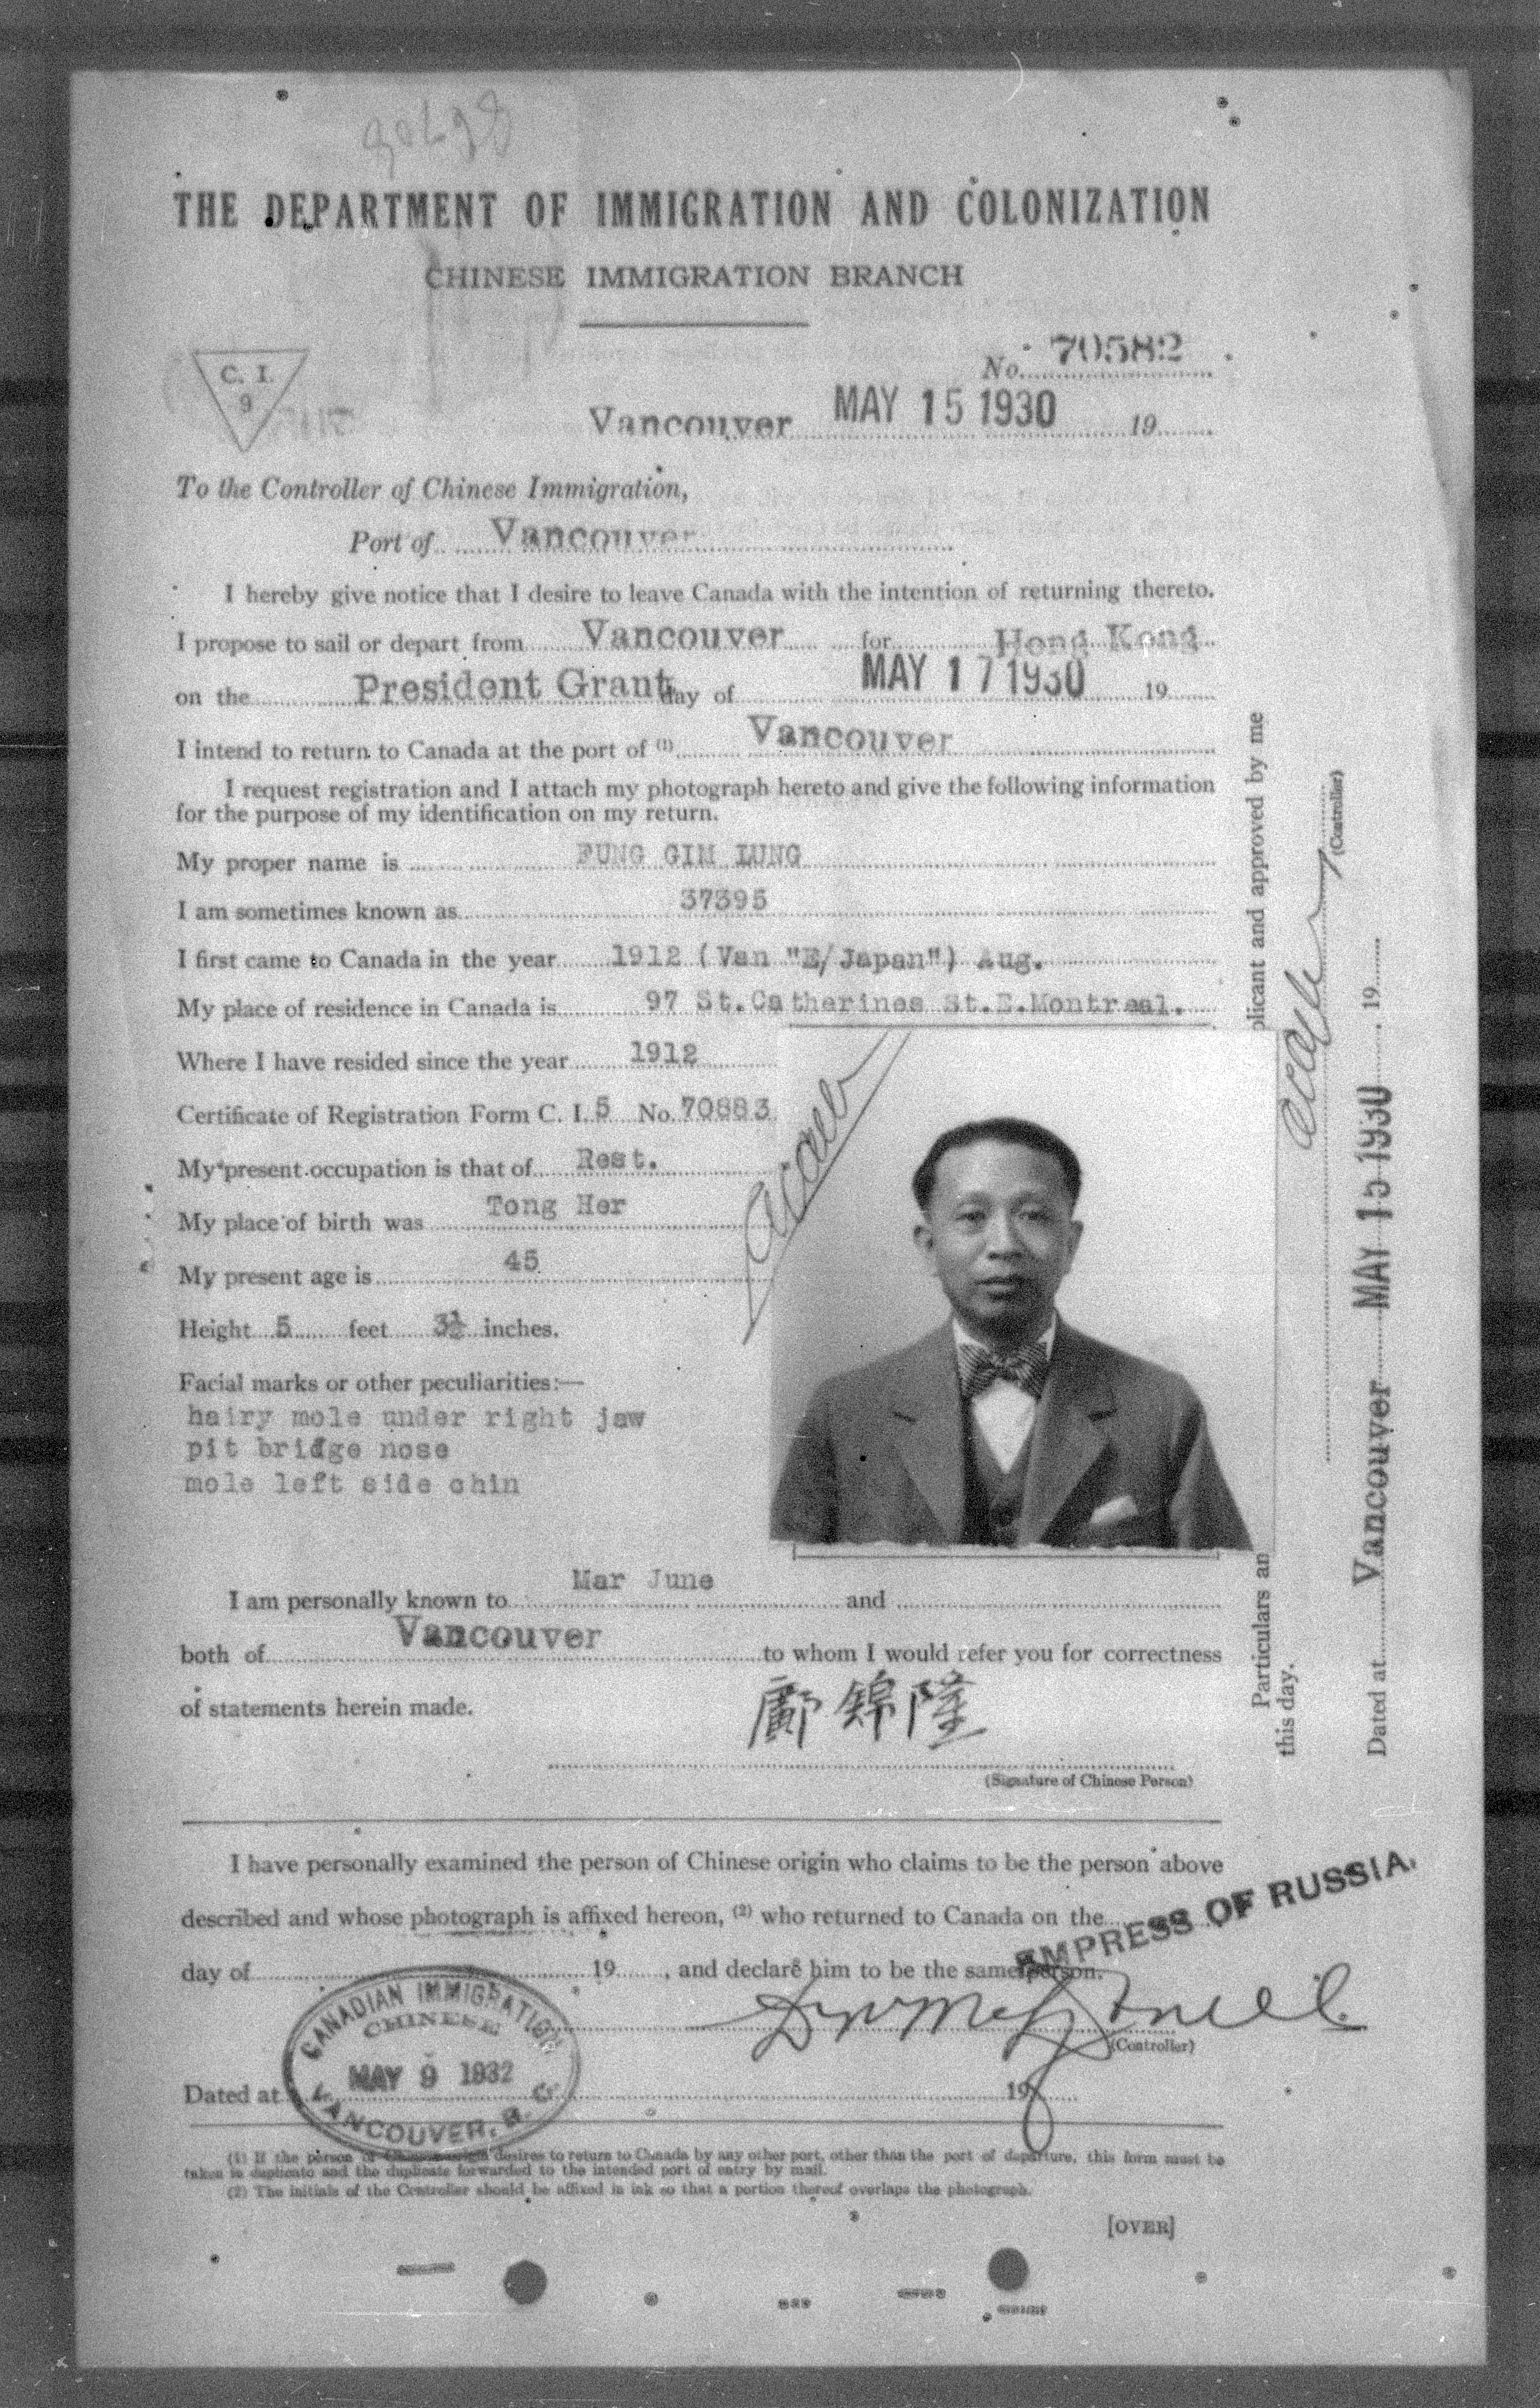 THE DEPARTMENT OF IMMIGRATION AND COLONIZATION
CHINESE IMMIGRATION BRANCH
C. I.
9
No. 70582
Vancouver MAY 15 1930 19
To the Controller of Chinese Immigration,
Port of Vancouver
I hereby give notice that I desire to leave Canada with the intention of returning thereto.
I propose to sail or depart from Vancouver for Hong Kong
on the President Grant day of MAY 17 1930 19
I intend to return to Canada at the port of (1) Vancouver
I request registration and I attach my photograph hereto and give the following information
for the purpose of my identification on my return.
My proper name is FUNG GIM LUNG
I am sometimes known as 37395
I first came to Canada in the year 1912 (Van "E/Japan") Aug.
My place of residence in Canada is 97 St.Catherines St.E.Montreal.
Where I have resided since the year 1912
Certificate of Registration Form C. I. 5 No. 70883
My present occupation is that of Rest.
My place of birth was Tong Her
My present age is 45
Height 5 feet 3½ inches.
Facial marks or other peculiarities:—
hairy mole under right jaw
pit bridge nose
mole left side chin
I am personally known to Mar June and
both of Vancouver to whom I would refer you for correctness
of statements herein made.
鄺錦隆
(Signature of Chinese Person)
I have personally examined the person of Chinese origin who claims to be the person above
described and whose photograph is affixed hereon, (2) who returned to Canada on the
EMPRESS OF RUSSIA.
day of 19 , and declare him to be the same person.
(Controller)
CANADIAN IMMIGRATION
CHINESE
MAY 9 1932
VANCOUVER, B. C.
Dated at 19
(1) If the person of Chinese origin desires to return to Canada by any other port, other than the port of departure, this form must be
taken in duplicate and the duplicate forwarded to the intended port of entry by mail.
(2) The initials of the Controller should be affixed in ink so that a portion thereof overlaps the photograph.
[OVER]
Particulars an plicant and approved by me
this day.
(Controller)
Dated at Vancouver MAY 15 1930 19